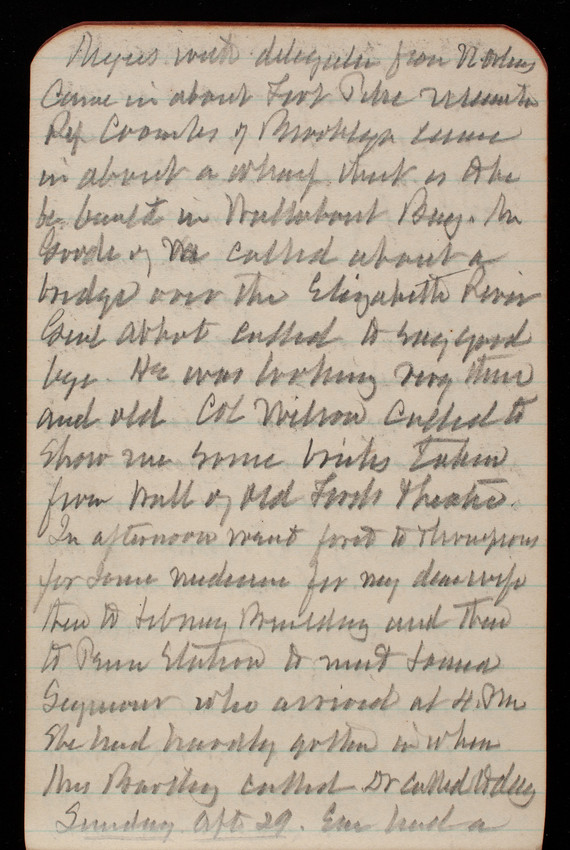 Meyers with delegation from N Orleans
Came in about Foot Pike
Rep Coombs of Brooklyn came
in about a wharf that is to be
be built in Wallabout Bay. Mr
Goode of Va called about a
bridge over the Elizabeth River
Genl Abbot called to say good
bye. He was looking very thin
and old Col Wilson called to
show me some bricks taken
from Wall of Old Fords Theatre.
In afternoon went first to Thompsons
for some medicine for my dear wife
then to Library Building and then
to Penn Station to meet
Seymour who arrived at 4. PM
She had hardly gotten in when
Mrs Barclay called Dr called to day
Sunday Apt 29. Em had a